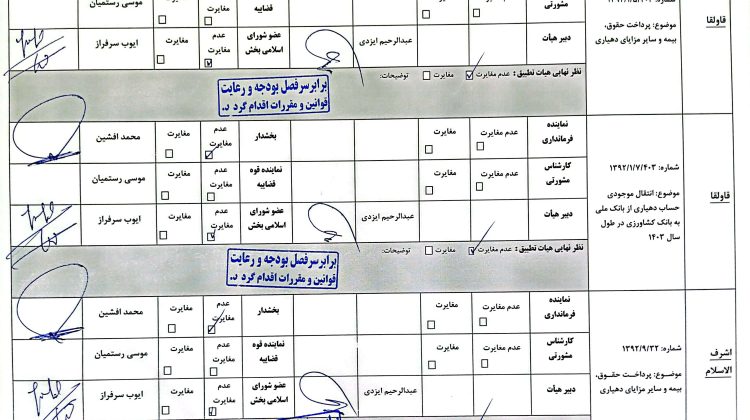 قاولقا
موضوع: پرداخت حقوق،
بیمه و سایر مزایای دهیاری
مشورتی
عدم مغایرت
مغایرت
قضاییه
عدم مغایرت
مغایرت
موسی رستمیان
دبیر هیأت
عبدالرحیم ایزدی
عضو شورای اسلامی بخش
عدم مغایرت
مغایرت
ایوب سرفراز
نظر نهایی هیات تطبیق: عدم مغایرت مغایرت توضیحات:
برابر سرفصل بودجه و رعایت
قوانین و مقررات اقدام گردد.
قاولقا
شماره: ۱۳۹۲/۱/۷/۴۰۳
موضوع: انتقال موجودی
حساب دهیاری از بانک ملی
به بانک کشاورزی در طول
سال ۱۴۰۳
نماینده فرمانداری
عدم مغایرت
مغایرت
بخشدار
عدم مغایرت
مغایرت
محمد افشین
کارشناس مشورتی
عدم مغایرت
مغایرت
نماینده قوه قضاییه
عدم مغایرت
مغایرت
موسی رستمیان
دبیر هیأت
عبدالرحیم ایزدی
عضو شورای اسلامی بخش
عدم مغایرت
مغایرت
ایوب سرفراز
نظر نهایی هیات تطبیق: عدم مغایرت مغایرت توضیحات:
برابر سرفصل بودجه و رعایت
قوانین و مقررات اقدام گردد.
اشرف الاسلام
شماره: ۱۳۹۲/۹/۳۲
موضوع: پرداخت حقوق،
بیمه و سایر مزایای دهیاری
نماینده فرمانداری
عدم مغایرت
مغایرت
بخشدار
عدم مغایرت
مغایرت
محمد افشین
کارشناس مشورتی
عدم مغایرت
مغایرت
نماینده قوه قضاییه
عدم مغایرت
مغایرت
موسی رستمیان
دبیر هیأت
عبدالرحیم ایزدی
عضو شورای اسلامی بخش
عدم مغایرت
مغایرت
ایوب سرفراز